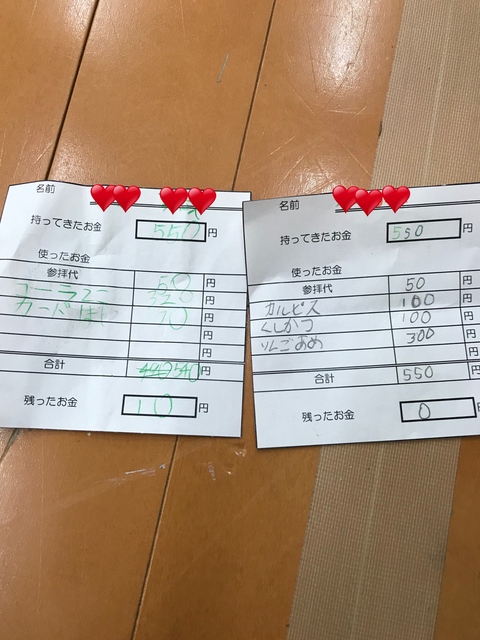 名前
持ってきたお金 550 円
使ったお金
参拝代 50 円
コーラ 円
カード 円
円
円
合計 540 円
残ったお金 10 円
名前
持ってきたお金 550 円
使ったお金
参拝代 50 円
カルピス 100 円
くしかつ 100 円
りんごあめ 300 円
円
合計 550 円
残ったお金 0 円